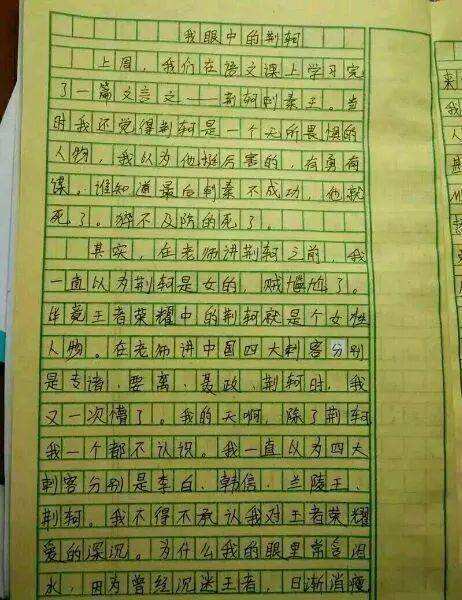 我眼中的荆轲
上周，我们在语文课上学习完
了一篇文言文——荆轲刺秦王。当
时我还觉得荆轲是一个无所畏惧的
人物，我以为他挺厉害的，有勇有
谋。谁知道最后刺秦不成功，他就
死了。猝不及防的死了。
其实，在老师讲荆轲之前，我
一直以为荆轲是女的，贼尴尬了。
毕竟王者荣耀中的荆轲就是个女性
人物。在老师讲中国四大刺客分别
是专诸、要离、聂政、荆轲时，我
又一次懵了。我的天啊，除了荆轲
我一个都不认识。我一直以为四大
刺客分别是李白、韩信、兰陵王、
荆轲。我不得不承认我对王者荣耀
爱的深沉。为什么我的眼里常含泪
水，因为曾经沉迷王者，日渐消瘦
来
我